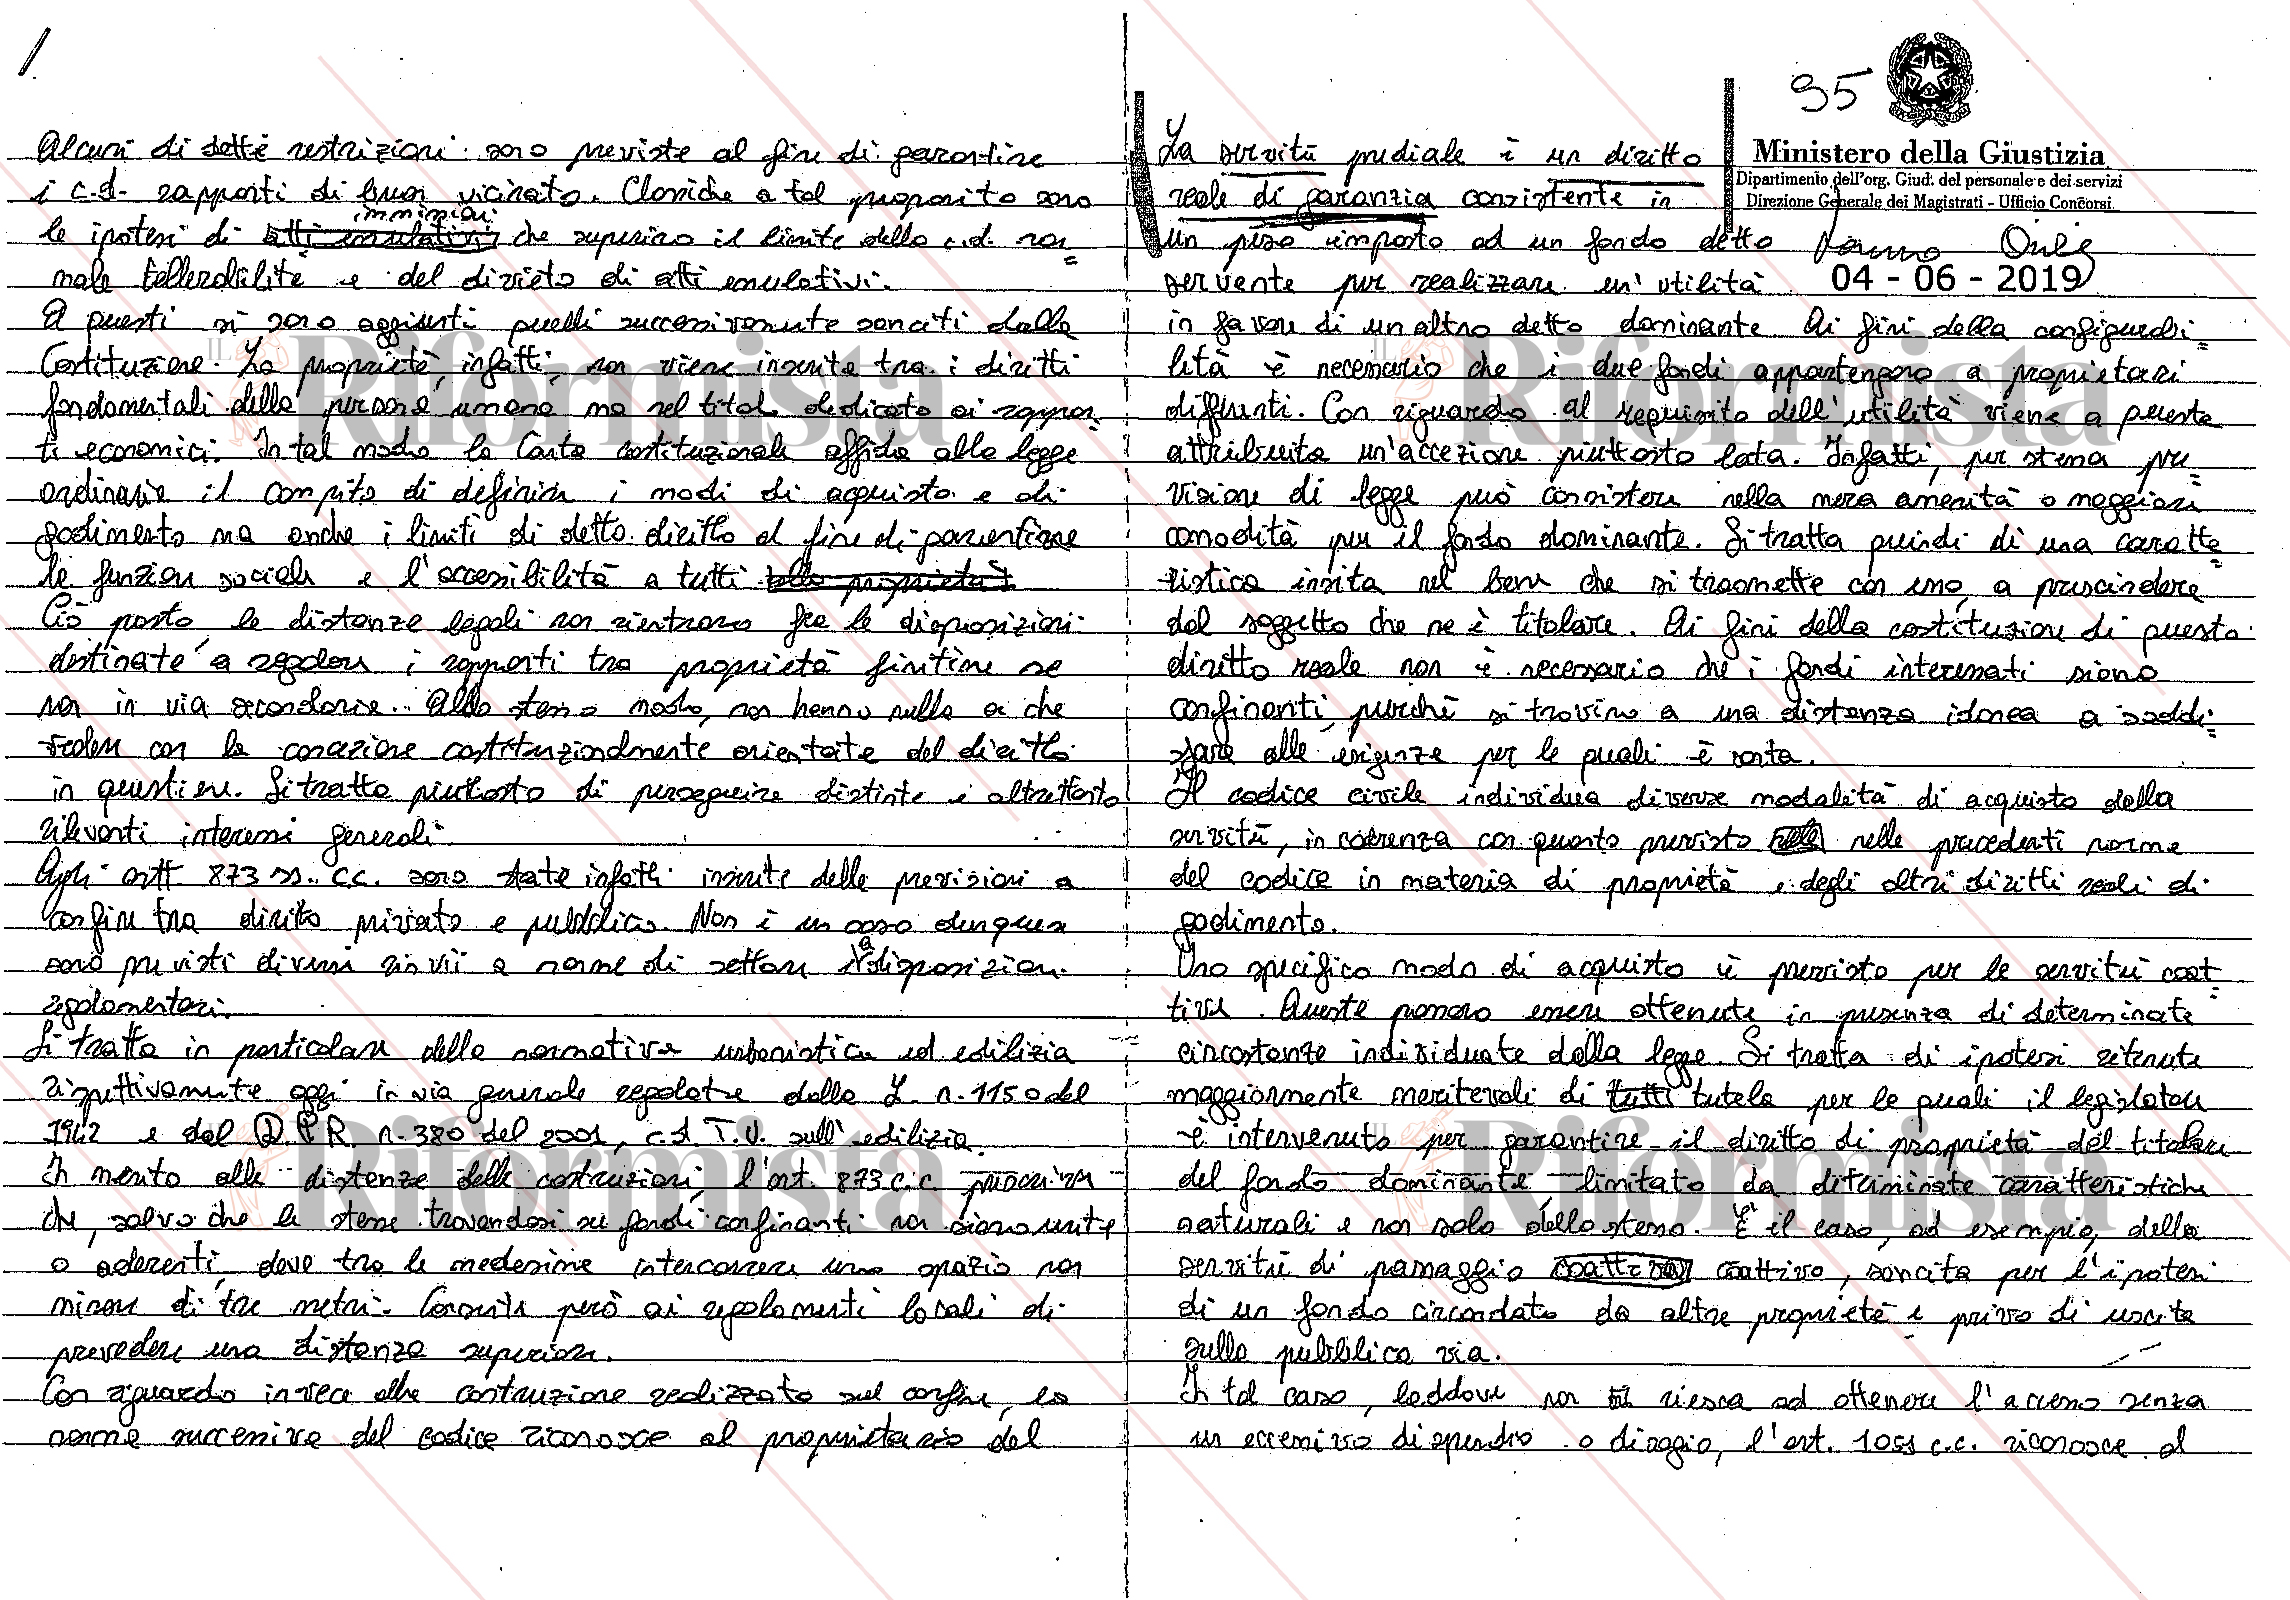 Alcuni di dette restrizioni sono previste al fine di garantire
i c.d. rapporti di buon vicinato. Classiche a tal proposito sono
immissioni
le ipotesi di atti emulativi che superino il limite della c.d. nor=
male tollerabilità e del divieto di atti emulativi.
A questi si sono aggiunti quelli successivamente sanciti dalla
Costituzione. La proprietà, infatti, non viene inserita tra i diritti
fondamentali della persona umana ma nel titolo dedicato ai rappor=
ti economici. In tal modo la Carta costituzionale affida alla legge
ordinaria il compito di definire i modi di acquisto e di
godimento ma anche i limiti di detto diritto al fine di garantirne
la funzione sociale e l'accessibilità a tutti della proprietà.
Ciò posto, le distanze legali non rientrano fra le disposizioni
destinate a regolare i rapporti tra proprietà finitime se
non in via secondaria. Allo stesso modo, non hanno nulla a che
vedere con la concezione costituzionalmente orientata del diritto
in questione. Si tratta piuttosto di perseguire distinti e altrettanto
rilevanti interessi generali.
Agli artt. 873 ss. c.c. sono state infatti inserite delle previsioni a
confine tra diritto privato e pubblico. Non è un caso dunque
sono previsti diversi rinvii a norme di settore a disposizioni
regolamentari.
Si tratta in particolare della normativa urbanistica ed edilizia
rispettivamente oggi in via generale regolate dalla L. n. 1150 del
1942 e dal D.P.R. n. 380 del 2001, c.d. T.U. sull'edilizia.
In merito alle distanze delle costruzioni, l'art. 873 c.c. prescrive
che, salvo che le stesse trovandosi su fondi confinanti non siano unite
o aderenti, deve tra le medesime intercorrere uno spazio non
minore di tre metri. Consente però ai regolamenti locali di
prevedere una distanza superiore.
Con riguardo invece alla costruzione realizzata sul confine, la
norma successiva del codice riconosce al proprietario del
95
Ministero della Giustizia
Dipartimento dell'org. Giud. del personale e dei servizi
Direzione Generale dei Magistrati - Ufficio Concorsi
04 - 06 - 2019
La servitù prediale è un diritto
reale di garanzia consistente in
un peso imposto ad un fondo detto
servente per realizzare un'utilità
in favore di un altro detto dominante. Ai fini della configurabi=
lità è necessario che i due fondi appartengano a proprietari
differenti. Con riguardo al requisito dell'utilità viene a questa
attribuita un'accezione piuttosto lata. Infatti, per stessa pre=
visione di legge può consistere nella mera amenità o maggiore
comodità per il fondo dominante. Si tratta quindi di una caratte=
ristica insita nel bene che si trasmette con esso, a prescindere
dal soggetto che ne è titolare. Ai fini della costituzione di questo
diritto reale non è necessario che i fondi interessati siano
confinanti, purché si trovino a una distanza idonea a soddi=
sfare alle esigenze per le quali è sorta.
Il codice civile individua diverse modalità di acquisto della
servitù, in coerenza con quanto previsto nelle nelle precedenti norme
del codice in materia di proprietà e degli altri diritti reali di
godimento.
Uno specifico modo di acquisto è previsto per le servitù coat=
tive. Queste possono essere ottenute in presenza di determinate
circostanze individuate dalla legge. Si tratta di ipotesi ritenute
maggiormente meritevoli di tutti tutela per le quali il legislatore
è intervenuto per garantire il diritto di proprietà del titolare
del fondo dominante, limitato da determinate caratteristiche
naturali e non solo dello stesso. È il caso, ad esempio, della
servitù di passaggio coattivo coattivo, sancita per l'ipotesi
di un fondo circondato da altre proprietà e privo di uscita
sulla pubblica via.
In tal caso, laddove non riesca ad ottenere l'accesso senza
un eccessivo dispendio o disagio, l'art. 1051 c.c. riconosce al
IL Riformista
IL Riformista
IL Riformista
IL Riformista